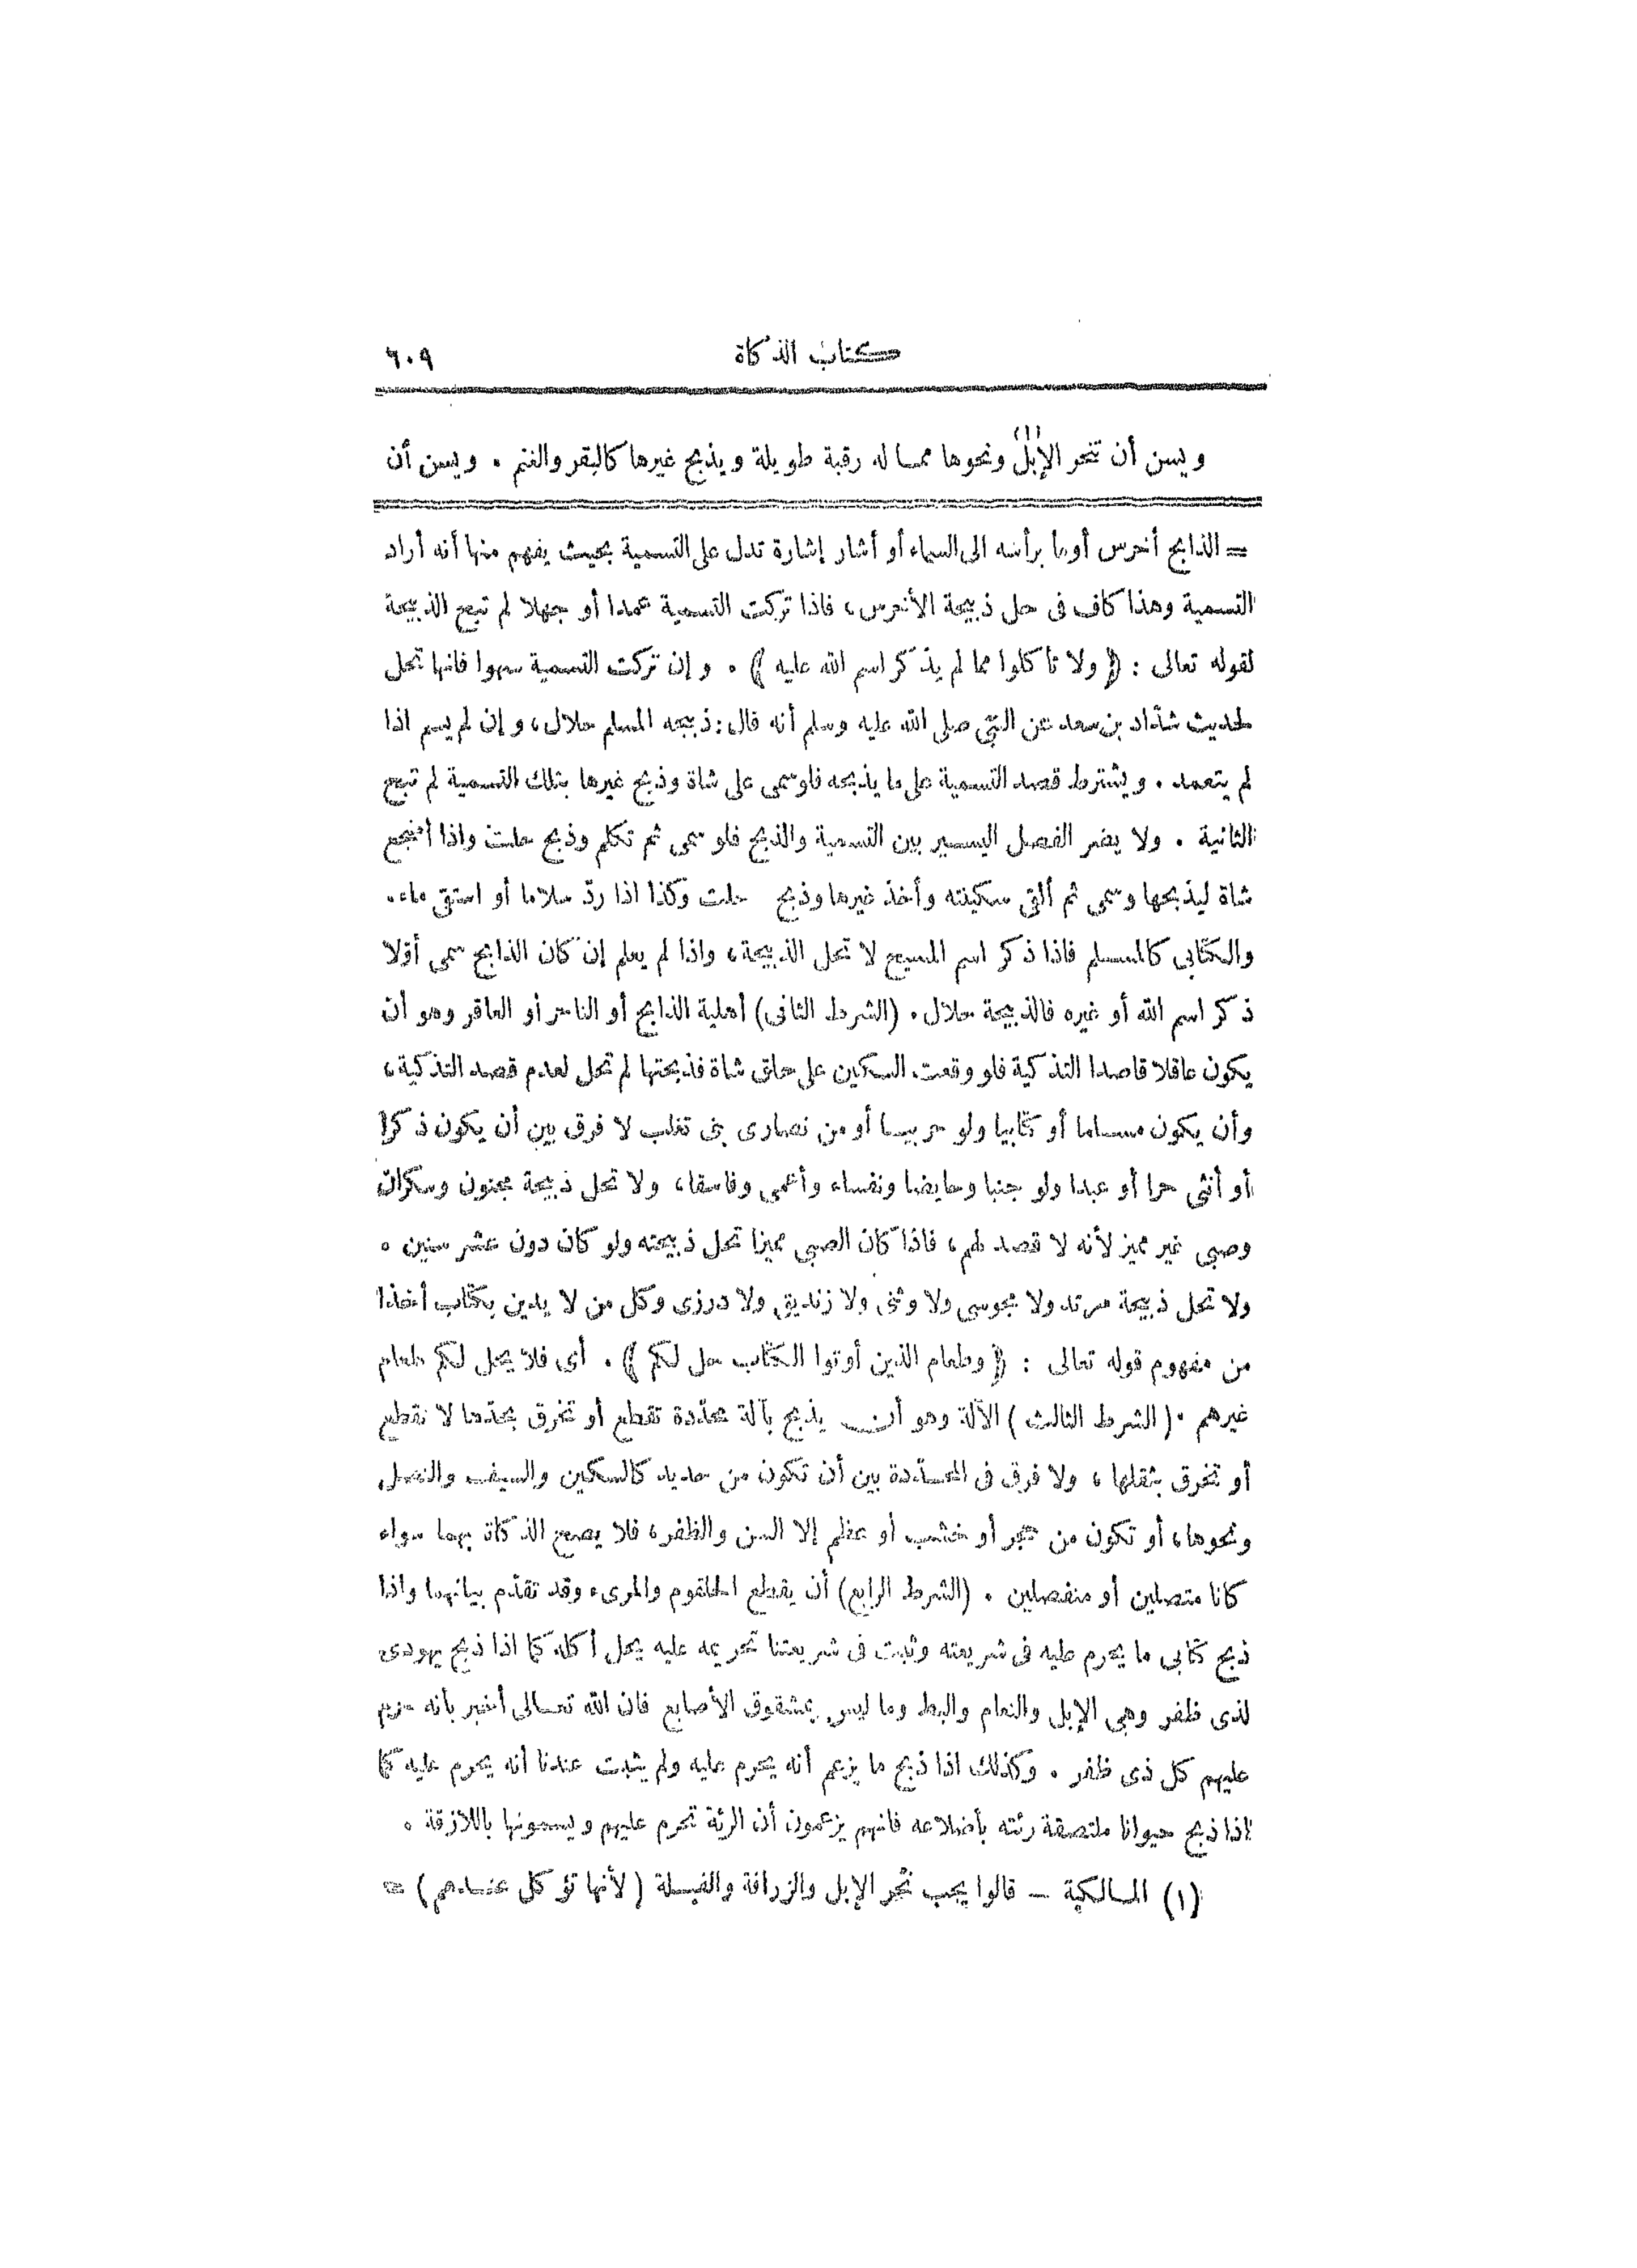 كتاب الذكاة ٦٠٩
ويسن أن تنحر الإبل(١) ونحوها مما له رقبة طويلة ويذبح غيرها كالبقر والغنم . ويسن أن
= الذابح أخرس أومأ برأسه الى السماء أو أشار إشارة تدل على التسمية بحيث يفهم منها أنه أراد
التسمية وهذا كاف فى حل ذبيحة الأخرس، فاذا تركت التسمية عمدا أو جهلا لم تبح الذبيحة
لقوله تعالى : ﴿ ولا تأكلوا مما لم يذكر اسم الله عليه ﴾ . وإن تركت التسمية سهوا فانها تحل
لحديث شدّاد بن سعد عن النبىّ صلى الله عليه وسلم أنه قال: ذبيحه المسلم حلال، وإن لم يسم اذا
لم يتعمد . ويشترط قصد التسمية على ما يذبحه فلو سمى على شاة وذبح غيرها بتلك التسمية لم تبح
الثانية . ولا يضر الفصل اليسير بين التسمية والذبح فلو سمى ثم تكلم وذبح حلت واذا أضجع
شاة ليذبحها وسمى ثم ألقى سكينته وأخذ غيرها وذبح حلت وكذا اذا ردّ سلاما أو استقى ماء.
والكتابى كالمسلم فاذا ذكر اسم المسيح لا تحل الذبيحة، واذا لم يعلم إن كان الذابح سمى أوّلا
ذكر اسم الله أو غيره فالذبيحة حلال . (الشرط الثانى) أهلية الذابح أو الناحر أو العاقر وهو أن
يكون عاقلا قاصدا التذكية فلو وقعت السكين على حلق شاة فذبحتها لم تحل لعدم قصد التذكية،
وأن يكون مسلما أو كتابيا ولو حربيا أو من نصارى بنى تغلب لا فرق بين أن يكون ذكرا
أو أنثى حرا أو عبدا ولو جنبا وحايضا ونفساء وأعمى وفاسقا، ولا تحل ذبيحة مجنون وسكران
وصبى غير مميز لأنه لا قصد لهم، فاذا كان الصبى مميزا تحل ذبيحته ولو كان دون عشر سنين .
ولا تحل ذبيحة مرتد ولا مجوسى ولا وثنى ولا زنديق ولا درزى وكل من لا يدين بكتاب أخذا
من مفهوم قوله تعالى : ﴿ وطعام الذين أوتوا الكتاب حل لكم ﴾ . أى فلا يحل لكم طعام
غيرهم . ( الشرط الثالث ) الآلة وهو أن يذبح بآلة محدّدة تقطع أو تخرق بحدّها لا تقطع
أو تخرق بثقلها ، ولا فرق فى المحدّدة بين أن تكون من حديد كالسكين والسيف والنصل
ونحوها، أو تكون من حجر أو خشب أو عظم إلا السن والظفر، فلا يصح الذكاة بهما سواء
كانا متصلين أو منفصلين . (الشرط الرابع) أن يقطع الحلقوم والمرىء وقد تقدّم بيانهما واذا
ذبح كتابى ما يحرم عليه فى شريعته وثبت فى شريعتنا تحريمه عليه يحل أكله كما اذا ذبح يهودى
لذى ظفر وهى الإبل والنعام والبط وما ليس بمشقوق الأصابع فان الله تعالى أخبر بأنه حرم
عليهم كل ذى ظفر . وكذلك اذا ذبح ما يزعم أنه يحرم عليه ولم يثبت عندنا أنه يحرم عليه كما
اذا ذبح حيوانا ملتصقة رئته بأضلاعه فانهم يزعمون أن الرئة تحرم عليهم ويسمونها باللازقة .
(١) المالكية — قالوا يجب نحر الإبل والزرافة والفيلة ( لأنها تؤكل عندهم ) =